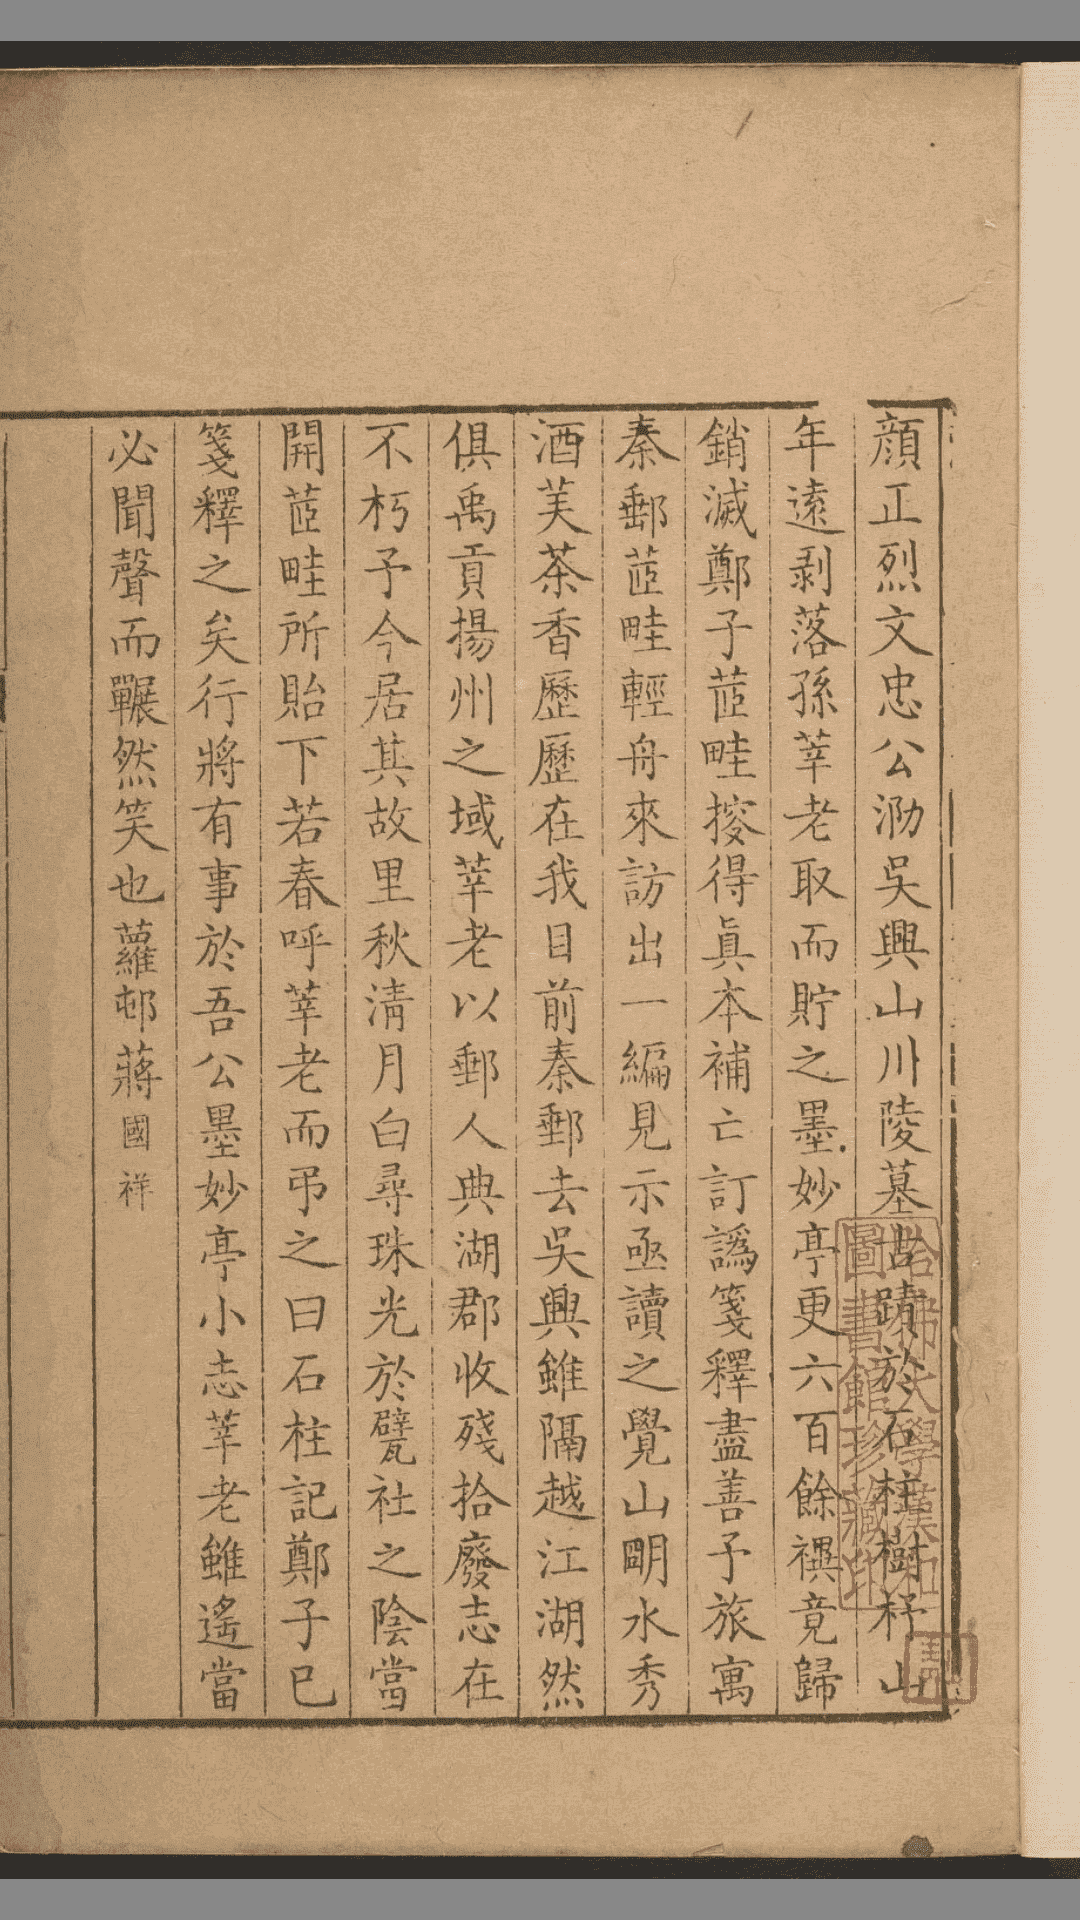 顔正烈文忠公泐吳興山川陵墓古蹟於石柱樹杼山
年遠剥落孫莘老取而貯之墨妙亭更六百餘禩竟歸
銷滅鄭子芷畦搜得眞本補亡訂譌箋釋盡善予旅寓
秦郵芷畦輕舟來訪出一編見示亟讀之覺山明水秀
酒美茶香歷歷在我目前秦郵去吳興雖隔越江湖然
俱禹貢揚州之域莘老以郵人典湖郡收殘拾廢志在
不朽予今居其故里秋清月白尋珠光於甓社之陰當
開芷畦所貽下若春呼莘老而弔之曰石柱記鄭子已
箋釋之矣行將有事於吾公墨妙亭小志莘老雖遙當
必聞聲而囅然笑也蘿邨蔣國祥
哈佛大學漢和
圖書館珍藏印